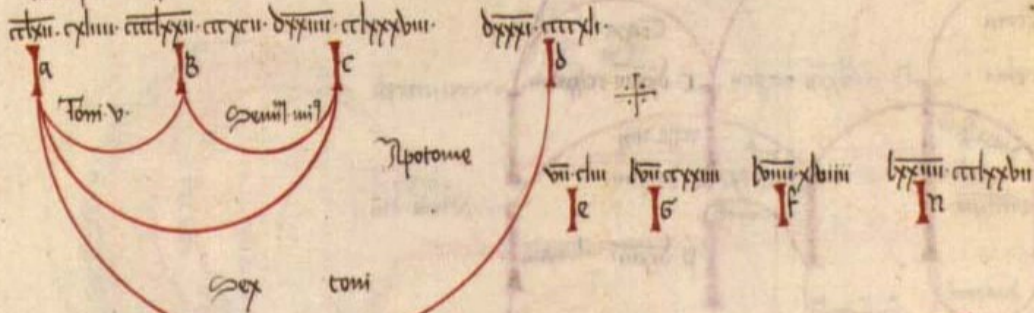 cclxii· cxliiii· cccclxxii· cccxcii· dxxiiii· cclxxxviii· dxxxi· ccccxli·
a B c d
Toni·v·
Apotome
vii·cliii lvii ccxxiiii lviiii·xlviiii lxxiiii·ccclxxvii
e G f n
Sex toni